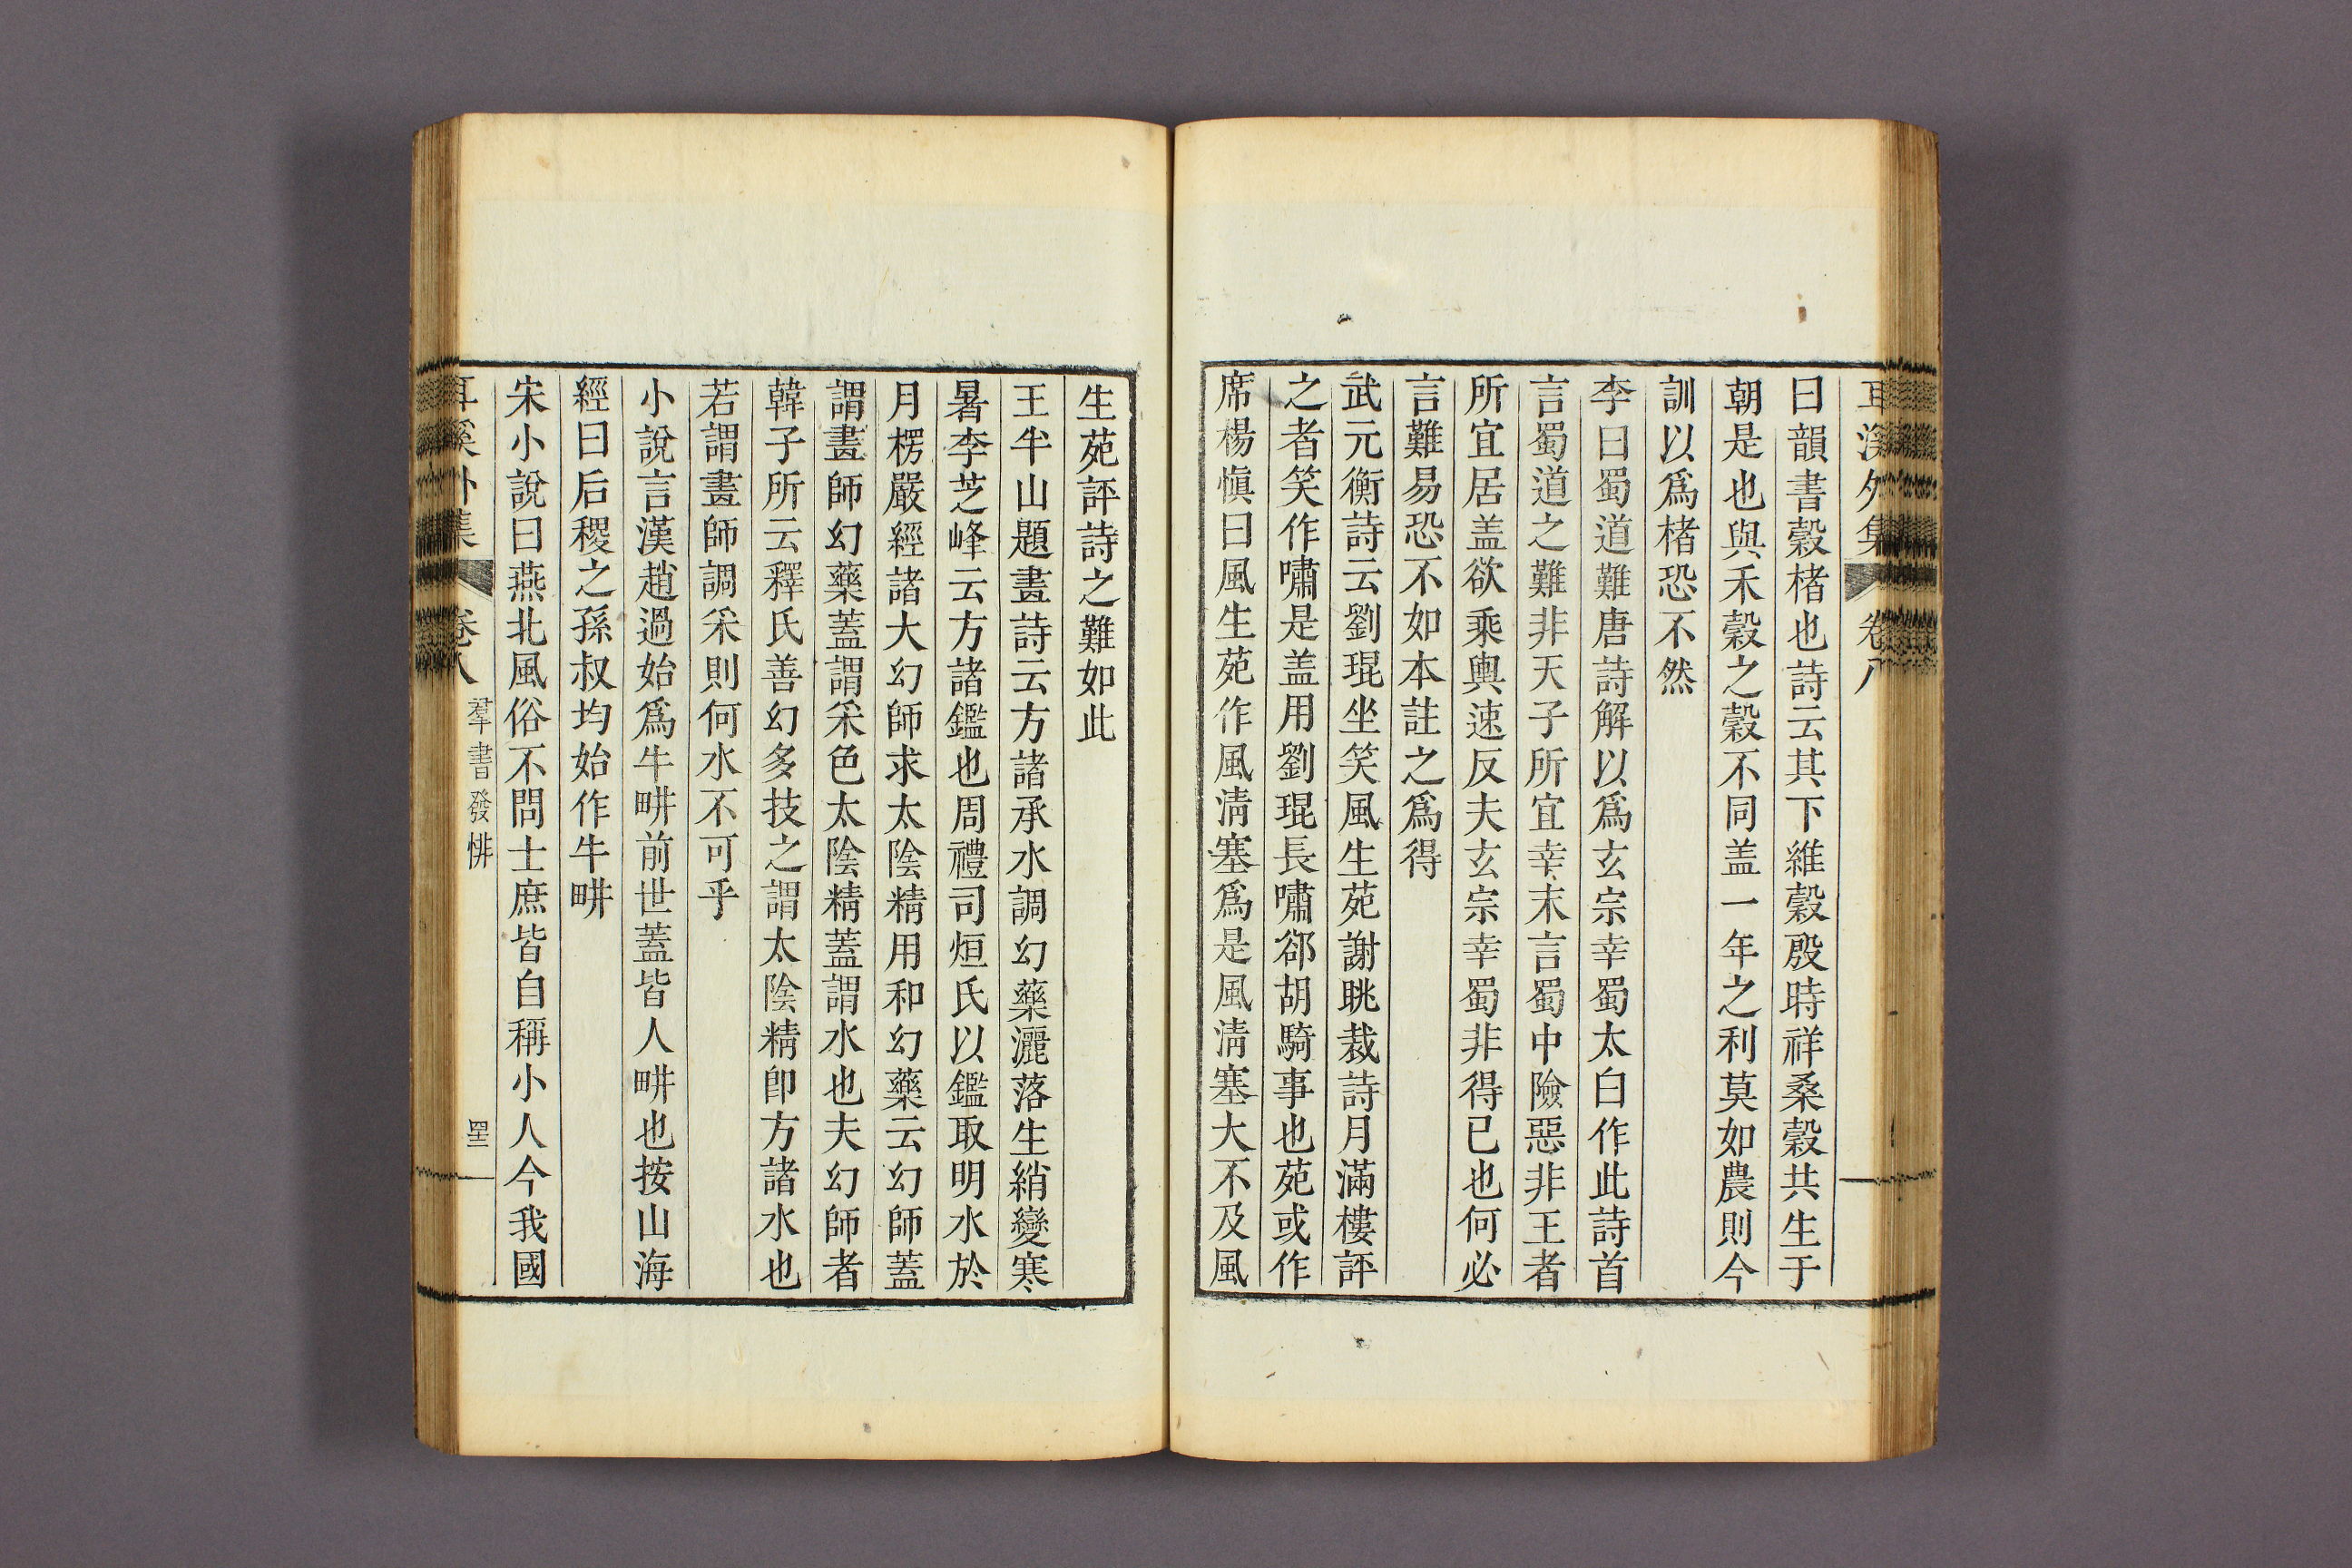 耳溪外集　卷八
曰韻書穀楮也詩云其下維穀殷時祥桑穀共生于
朝是也與禾穀之穀不同盖一年之利莫如農則今
訓以爲楮恐不然
李曰蜀道難唐詩解以爲玄宗幸蜀太白作此詩首
言蜀道之難非天子所宜幸末言蜀中險惡非王者
所宜居盖欲乘輿速反夫玄宗幸蜀非得已也何必
言難易恐不如本註之爲得
武元衡詩云劉琨坐笑風生苑謝眺裁詩月滿樓評
之者笑作嘯是盖用劉琨長嘯郤胡騎事也苑或作
席楊愼曰風生苑作風淸塞爲是風淸塞大不及風
生苑評詩之難如此
王半山題畫詩云方諸承水調幻藥灑落生綃變寒
暑李芝峰云方諸鑑也周禮司烜氏以鑑取明水於
月楞嚴經諸大幻師求太陰精用和幻藥云幻師蓋
謂畫師幻藥蓋謂采色太陰精蓋謂水也夫幻師者
韓子所云釋氏善幻多技之謂太陰精卽方諸水也
若謂畫師調采則何水不可乎
小說言漢趙過始爲牛畊前世蓋皆人畊也按山海
經曰后稷之孫叔均始作牛畊
宋小說曰燕北風俗不問士庶皆自稱小人今我國
耳溪外集　卷八　羣書發悱